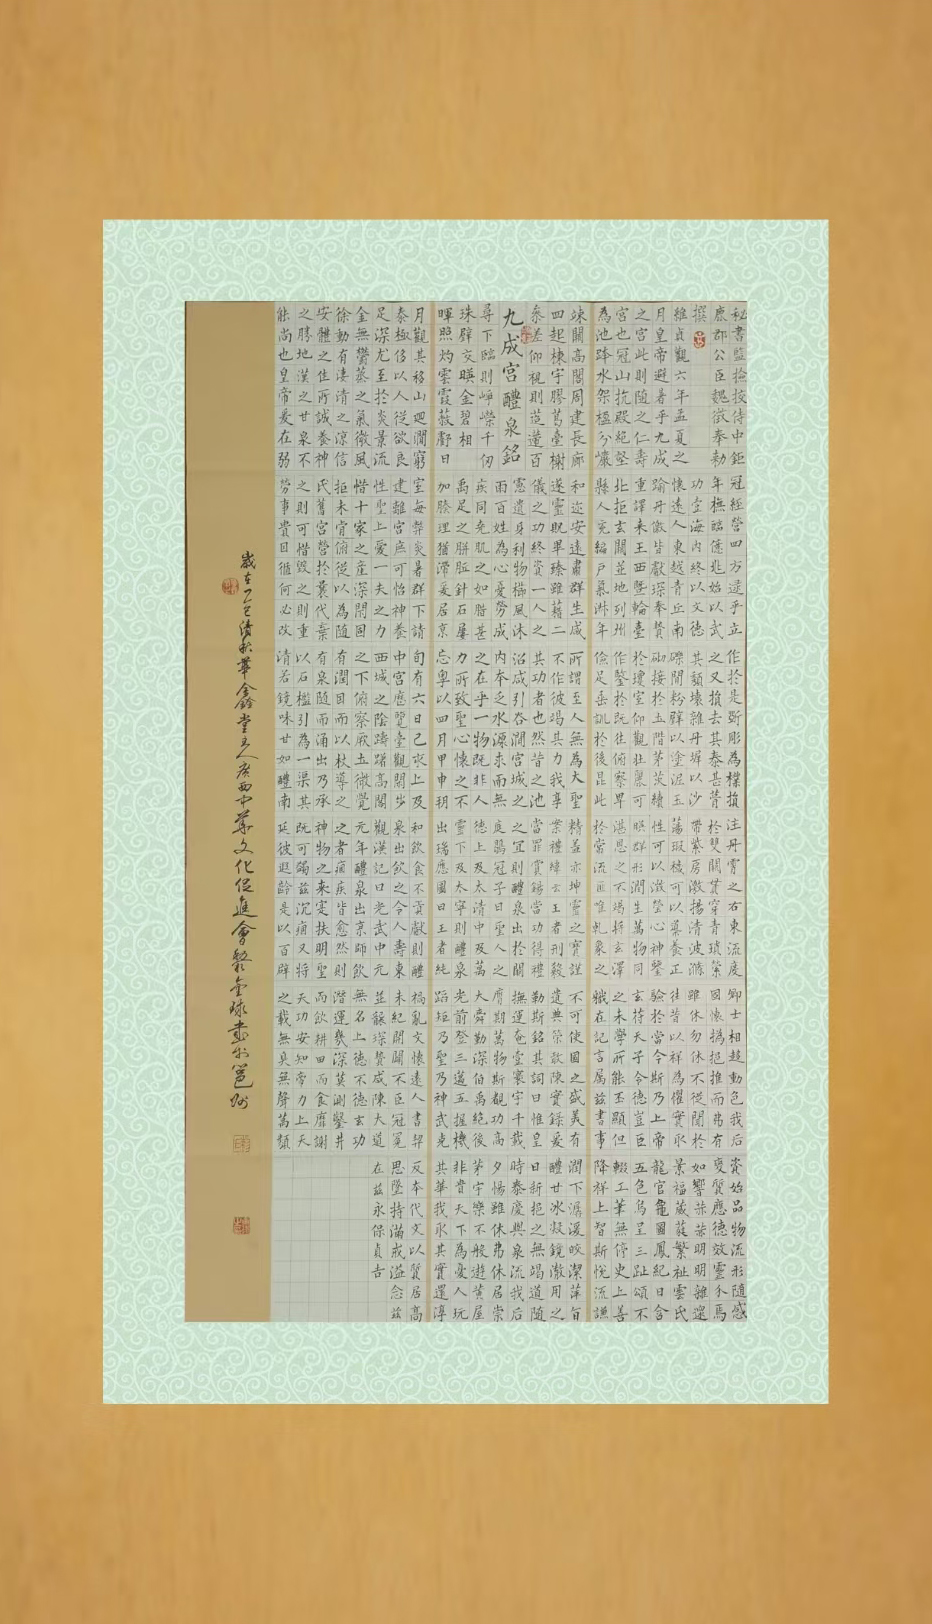 秘書監撿挍侍中鉅
鹿郡公臣魏徵奉勅
撰
維貞觀六年孟夏之
月皇帝避暑乎九成
之宮此則隨之仁壽
宮也冠山抗殿絕壑
為池跨水架楹分巖
竦闕高閣周建長廊
四起棟宇膠葛臺榭
參差仰視則迢遰百
九成宮醴泉銘
尋下臨則崢嶸千仞
珠璧交暎金碧相
暉照灼雲霞蔽虧日
月觀其移山迴澗窮
泰極侈以人從欲良
足深尤至於炎景流
金無鬱蒸之氣微風
徐動有淒清之涼信
安體之佳所誠養神
之勝地漢之甘泉不
能尚也皇帝爰在弱
冠經營四方逮乎立
年撫臨億兆始以武
功壹海內終以文德
懷遠人東越青丘南
踰丹徼皆獻琛奉贄
重譯来王西暨輪臺
北拒玄闕並地列州
縣人充編戶氣淑年
和迩安遠肅群生咸
遂靈貺畢臻雖藉二
儀之功終資一人之
憲遺身利物櫛風沐
雨百姓為心憂勞成
疾同堯肌之如腊甚
禹足之胼胝針石屢
加腠理猶滯爰居京
室每弊炎暑群下請
建離宮庶可怡神養
性聖上愛一夫之力
惜十家之產深閉固
拒未肯俯從以為隨
氏舊宮營於曩代棄
之則可惜毀之則重
勞事貴因循何必改
作於是斲彫為樸損
之又損去其泰甚葺
其頹壞雜丹墀以沙
礫間粉壁以塗泥玉
砌接於土階茅茨續
於瓊室仰觀壯麗可
作鑒於既往俯察卑
儉足垂訓於後昆此
所謂至人無為大聖
不作彼竭其力我享
其功者也然昔之池
沼咸引谷澗宮城之
內本乏水源求而無
之在乎一物既非人
力所致聖心懷之不
忘粵以四月甲申朔
旬有六日己亥上及
中宮歷覽臺觀閑步
西城之陰躊躇高閣
之下俯察厥土微覺
有潤因而以杖導之
有泉隨而涌出乃承
以石檻引為一渠其
清若鏡味甘如醴南
注丹霄之右東流度
於雙闕貫穿青瑣縈
帶紫房激揚清波滌
蕩瑕穢可以導養正
性可以澂瑩心神鑒
暎群形潤生萬物同
湛恩之不竭將玄澤
於常流匪唯乹象之
精蓋亦坤靈之寶謹
案禮緯云王者刑殺
當罪賞錫當功得禮
之宜則醴泉出於闕
庭鶡冠子曰聖人之
德上及太清中及萬
靈下及太寧則醴泉
出瑞應圖曰王者純
和飲食不貢獻則醴
泉出飲之令人壽東
觀漢記曰光武中元
元年醴泉出京師飲
之者痼疾皆愈然則
神物之来寔扶明聖
既可蠲茲沉痼又將
延彼遐齡是以百辟
卿士相趨動色我后
固懷撝挹推而弗有
雖休勿休不徒聞於
往昔以祥為懼實取
驗於當今斯乃上帝
玄符天子令德豈臣
之末學所能丕顯但
職在記言属茲書事
不可使國之盛美有
遺典策敢陳實錄爰
勒斯銘其詞曰惟皇
撫運奄壹寰宇千載
膺期萬物斯覩功高
大舜勤深伯禹絕後
光前登三邁五握機
蹈矩乃聖乃神武克
禍亂文懷遠人書契
未紀開闢不臣冠冕
並襲琛贄咸陳大道
無名上德不德玄功
潛運幾深莫測鑿井
而飲耕田而食靡謝
天功安知帝力上天
之載無臭無聲萬類
資始品物流形隨感
變質應德效靈介焉
如響赫赫明明雜遝
景福葳蕤繁祉雲氏
龍官龜圖鳳紀日含
五色烏呈三趾頌不
輟工筆無停史上善
降祥上智斯悅流謙
潤下潺湲皎潔萍旨
醴甘冰凝鏡澈用之
日新挹之無竭道随
時泰慶與泉流我后
夕惕雖休弗休居崇
茅宇樂不般遊黃屋
非貴天下為憂人玩
其華我取其實還淳
反本代文以質居高
思墜持滿戒溢念茲
在茲永保貞吉
歲在乙巳清秋華鑫堂主人廣西中華文化促進會黎金球書於邕州